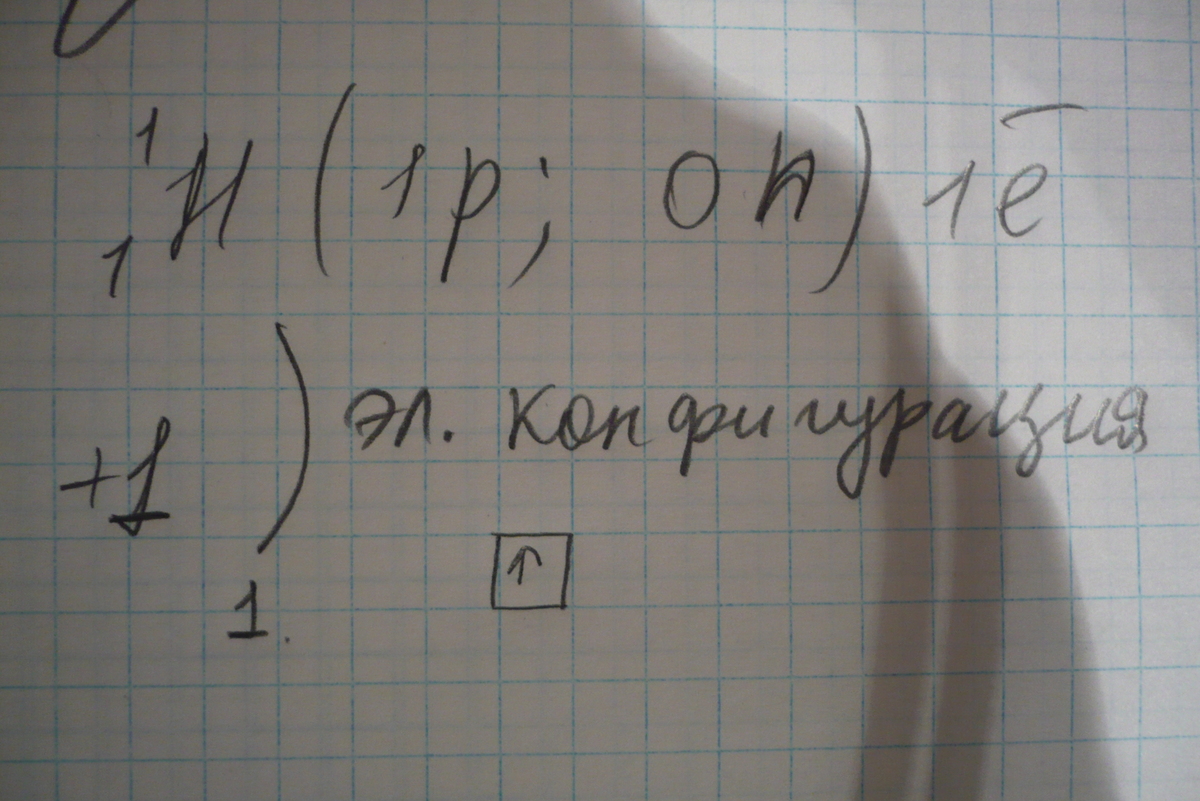 ¹₁H (1p; 0n) 1ē
+1 ) эл. конфигурация
1. ↑